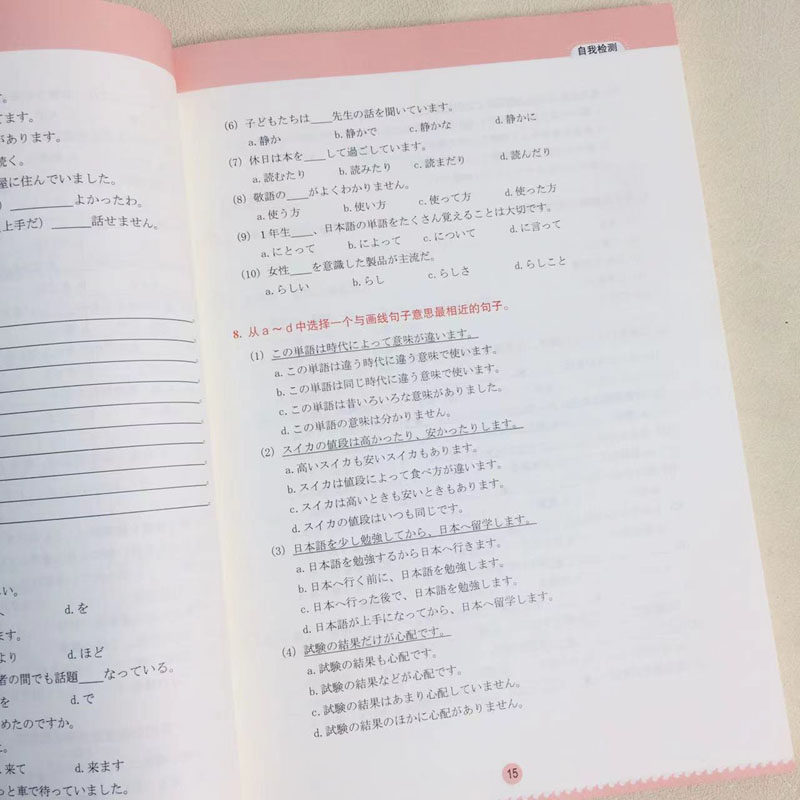 す。
てます。
があります。
続く。
屋に住んでいました。
)________よかったわ。
(上手だ)____話せません。
い。
d. を
ます。
より d. ほど
者の間でも話題___なっている。
を d. で
めたのですか。
た。
.来て d. 来ます
っと車で待っていました。
自我检测
(6) 子どもたちは___先生の話を聞いています。
a. 静か b. 静かで c. 静かな d. 静かに
(7) 休日は本を___して過ごしています。
a. 読むたり b. 読みたり c. 読まだり d. 読んだり
(8) 敬語の___がよくわかりません。
a. 使う方 b. 使い方 c. 使って方 d. 使った方
(9) 1年生___、日本語の単語をたくさん覚えることは大切です。
a. にとって b. によって c. について d. に言って
(10) 女性___を意識した製品が主流だ。
a. らしい b. らし c. らしさ d. らしこと
8. 从a～d中选择一个与画线句子意思最相近的句子。
(1) この単語は時代によって意味が違います。
a. この単語は違う時代に違う意味で使います。
b. この単語は同じ時代に違う意味で使います。
c. この単語は昔いろいろな意味がありました。
d. この単語の意味は分かりません。
(2) スイカの値段は高かったり、安かったりします。
a. 高いスイカも安いスイカもあります。
b. スイカは値段によって食べ方が違います。
c. スイカは高いときも安いときもあります。
d. スイカの値段はいつも同じです。
(3) 日本語を少し勉強してから、日本へ留学します。
a. 日本語を勉強するから日本へ行きます。
b. 日本へ行く前に、日本語を勉強します。
c. 日本へ行った後で、日本語を勉強します。
d. 日本語が上手になってから、日本へ留学します。
(4) 試験の結果だけが心配です。
a. 試験の結果も心配です。
b. 試験の結果などが心配です。
c. 試験の結果はあまり心配していません。
d. 試験の結果のほかに心配がありません。
15